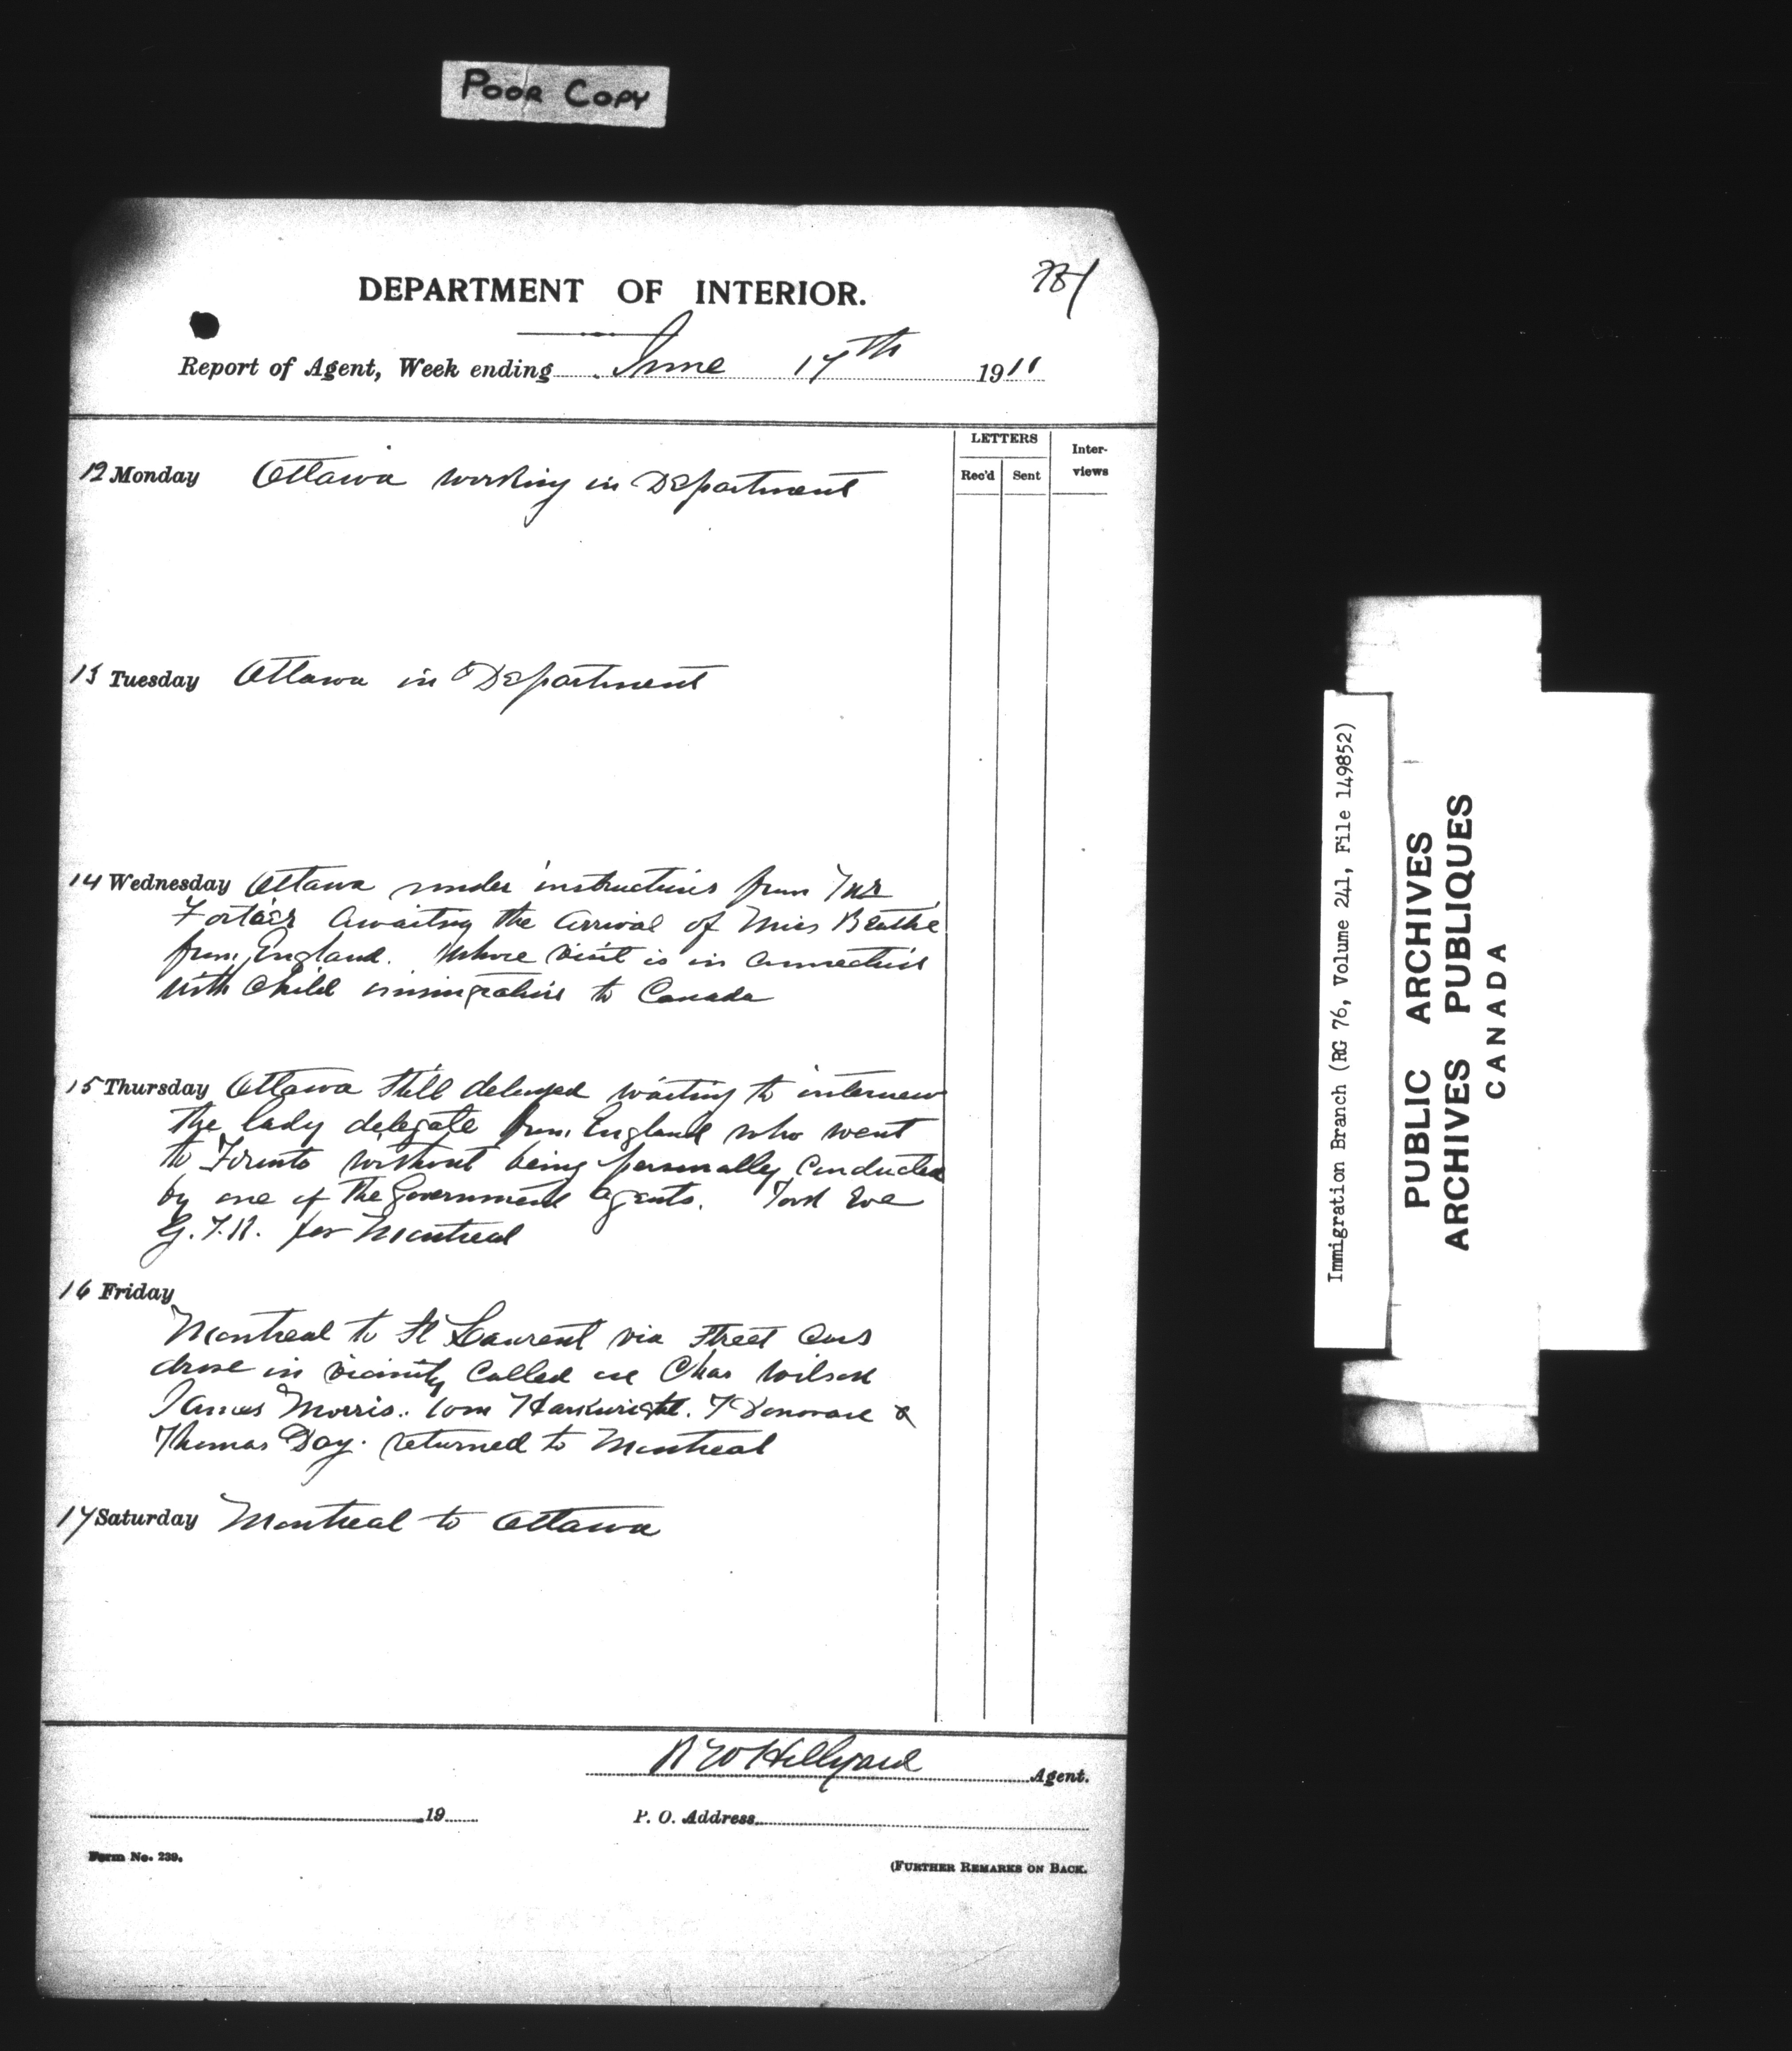 POOR COPY
DEPARTMENT OF INTERIOR.
Report of Agent, Week ending June 17th 1911
LETTERS
Rec'd Sent
Inter-
views
12 Monday Ottawa working in Department
13 Tuesday Ottawa in Department
14 Wednesday Ottawa under instructions from Mr
Fortier awaiting the arrival of Miss
from England. whose visit is in connection
with child immigration to Canada
15 Thursday Ottawa still delayed waiting to interview
the lady delegate from England who went
to Toronto without being personally conducted
by one of the Government agents. Took Eve
G.T.R. for Montreal
16 Friday
Montreal to St Laurent via street cars
drove in vicinity called on Chas Wilson
James Morris. Donovan &
Thomas Day. returned to Montreal
17 Saturday Montreal to Ottawa
Hillyard Agent.
19
P. O. Address
Form No. 239.
(FURTHER REMARKS ON BACK.
Immigration Branch (RG 76, Volume 241, File 149852)
PUBLIC ARCHIVES
ARCHIVES PUBLIQUES
CANADA